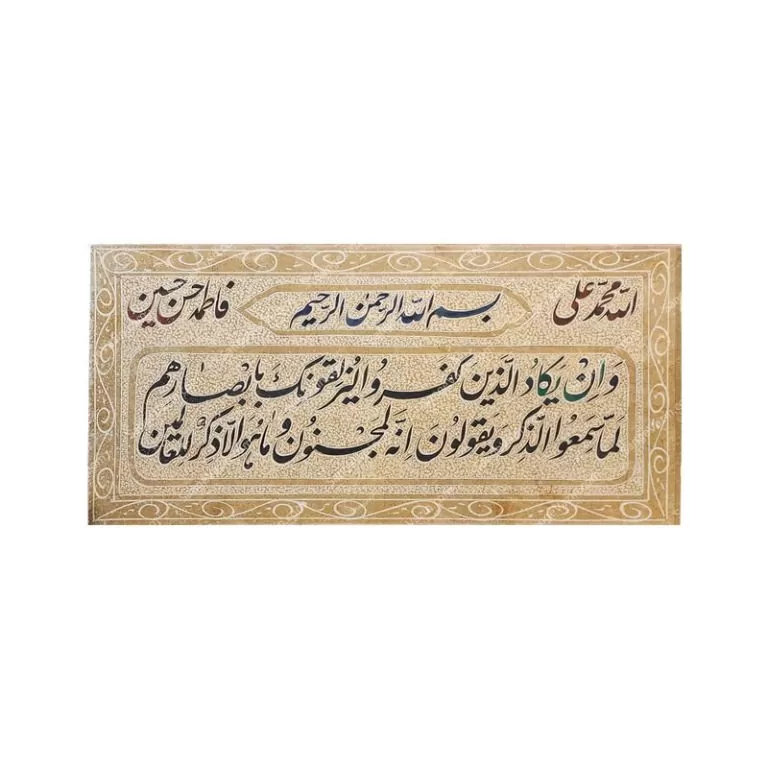 الله محمد علی
بسم الله الرحمن الرحیم
فاطمه حسن حسین
وَاِنْ یَکادُ الَّذینَ کَفَروُا لَیُزْلِقوُنَکَ بِاَبْصٰارِهِم
لَمّا سَمِعوُا الذِّکرَ وَیَقوُلوُنَ اِنَّهُ لَمَجنوُن وَمٰا هُوَ اِلّا ذِکرٌ لِلعٰالَمین